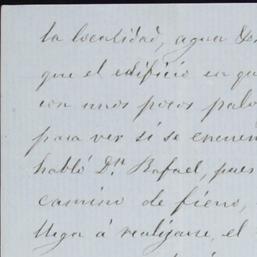 la localidad, agua &
que el edificio en qu
con unos pocos palo
para ver si se encuen
habló Dn. Rafael, pues
camino de fierro,
llega á realizarse, el